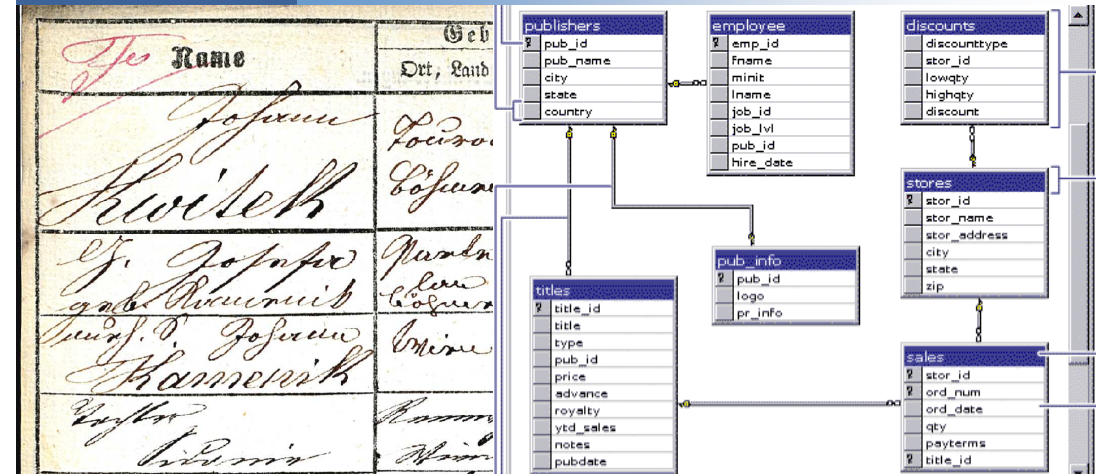 Name
Geb
Ort, Land
Johann
Kwitek
Böhmen
G. Josefa
geb. Kamenik
Johann
Kamenik
Wien
Tochter
publishers
pub_id
pub_name
city
state
country
employee
emp_id
fname
minit
lname
job_id
job_lvl
pub_id
hire_date
discounts
discounttype
stor_id
lowqty
highqty
discount
stores
stor_id
stor_name
stor_address
city
state
zip
pub_info
pub_id
logo
pr_info
titles
title_id
title
type
pub_id
price
advance
royalty
ytd_sales
notes
pubdate
sales
stor_id
ord_num
ord_date
qty
payterms
title_id